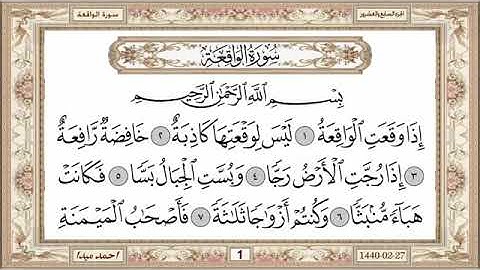 الجزء السابع والعشرون
سورة الواقعة
سُورَةُ الوَاقِعَة
بِسْمِ ٱللَّهِ ٱلرَّحْمَٰنِ ٱلرَّحِيمِ
إِذَا وَقَعَتِ ٱلْوَاقِعَةُ ١ لَيْسَ لِوَقْعَتِهَا كَاذِبَةٌ ٢ خَافِضَةٌ رَّافِعَةٌ
٣ إِذَا رُجَّتِ ٱلْأَرْضُ رَجًّا ٤ وَبُسَّتِ ٱلْجِبَالُ بَسًّا ٥ فَكَانَتْ
هَبَآءً مُّنۢبَثًّا ٦ وَكُنتُمْ أَزْوَٰجًا ثَلَٰثَةً ٧ فَأَصْحَٰبُ ٱلْمَيْمَنَةِ
1440-02-27
1